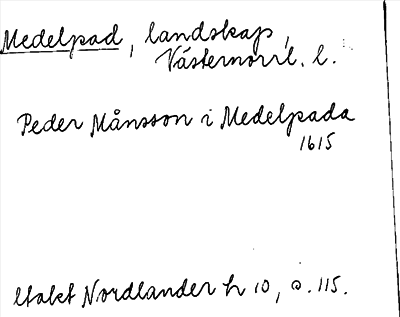 Medelpad, landskap,
Västernorrl. l.
Peder Månsson i Medelpada
1615
Nordlander h 10, s. 115.